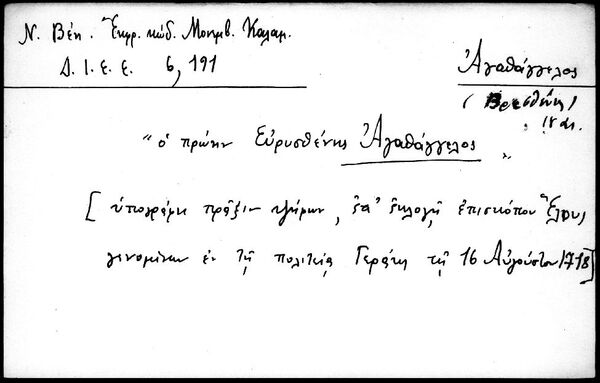 Ν. Βέη. Ἔκφρ. κώδ. Μονεμβ. Καλαμ.
Δ. Ι. Ε. Ε. 6, 191
Ἀγαθάγγελος
(Βρεσθένης)
"ὁ πρώην Εὐρυσθένης Ἀγαθάγγελος"
[ὑπογράφει πρᾶξιν ψήφων, ἐπ' ἐκλογῇ ἐπισκόπου Ἕλους,
γενομένων ἐν τῇ πολιτείᾳ Γεράκι τῇ 16 Αὐγούστου 1718]